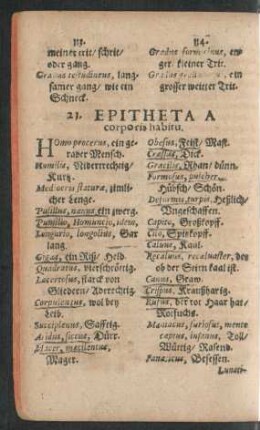 113.
meiner trit/ schrit/
oder gang.
Gradus testudineus, lang-
samer gang/ wie ein
Schneck.
114.
Gradus formicinus, en-
ger/ kleiner Trit.
ein
grosser weitter Trit.
23. EPITHETA A
corporis habitu.
Homo procerus, ein ge-
rader Mensch.
Humilis, Niderrrechtig/
Kurtz.
Mediocris staturæ, zimli-
cher Lenge.
Pusillus, nanus ein zwerg.
Pumilio, Homuncio, idem,
Longurio, longolius, Gar
lang.
Gigas, ein Riß/ Held.
Quadratus, vierschrötig.
Lacertosus, starck von
Gliedern/ Aderechtig
Corpulentus, wol bey
leib.
Succiplenus, Safftig.
Aridus, siccus, Dürr.
Macer, macilentus,
Mager.
Obesus, Feist/ Mast.
Crassus, Dick.
Gracilis, Rhan/ dünn.
Formosus, pulcher,
Hübsch/ Schön.
Deformis, turpis, Heßlich/
Ungeschaffen.
Capito, Großkopff.
Cilo, Spitzkopff.
Caluus, Kaal.
Recaluus, recaluaster, der
ob der Stirn kaal ist.
Canus, Graw.
Crispus, Kraußharig.
Rufus, der rot Haar hat/
Rotfuchs.
Maniacus, furiosus, mente
captus, insanus, Toll/
Wüttig/ Rasend.
Fanaticus, Besessen.
Lunati-